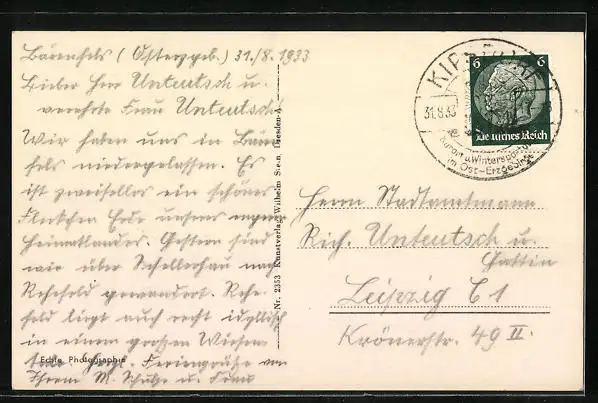 Bärenfels (Osterzgeb.) 31./8. 1933
Lieber Herr Unteutsch u.
verehrte Frau Unteutsch!
Wir haben uns in Bären-
fels niedergelassen. Es
ist zweifellos ein schönes
Fleckchen Erde unseres
Heimatlandes. Gestern sind
wir über Schellerhau nach
Rehefeld gewandert. Rehe-
feld liegt auch recht idyllisch
in einem großen Wiesen-
Herzl. Feriengrüße von
Ihrem M. Schulze u. Frau
Echte Photographie
Nr. 2353 Kunstverlag Wilhelm Dresden-A.
6 6
Deutsches Reich
31.8.33
Kurort u. Wintersport
im Ost-Erzgebirge
Herrn Stadtamtmann
Rich. Unteutsch u.
Gattin
Leipzig C1
Krönerstr. 49 II.